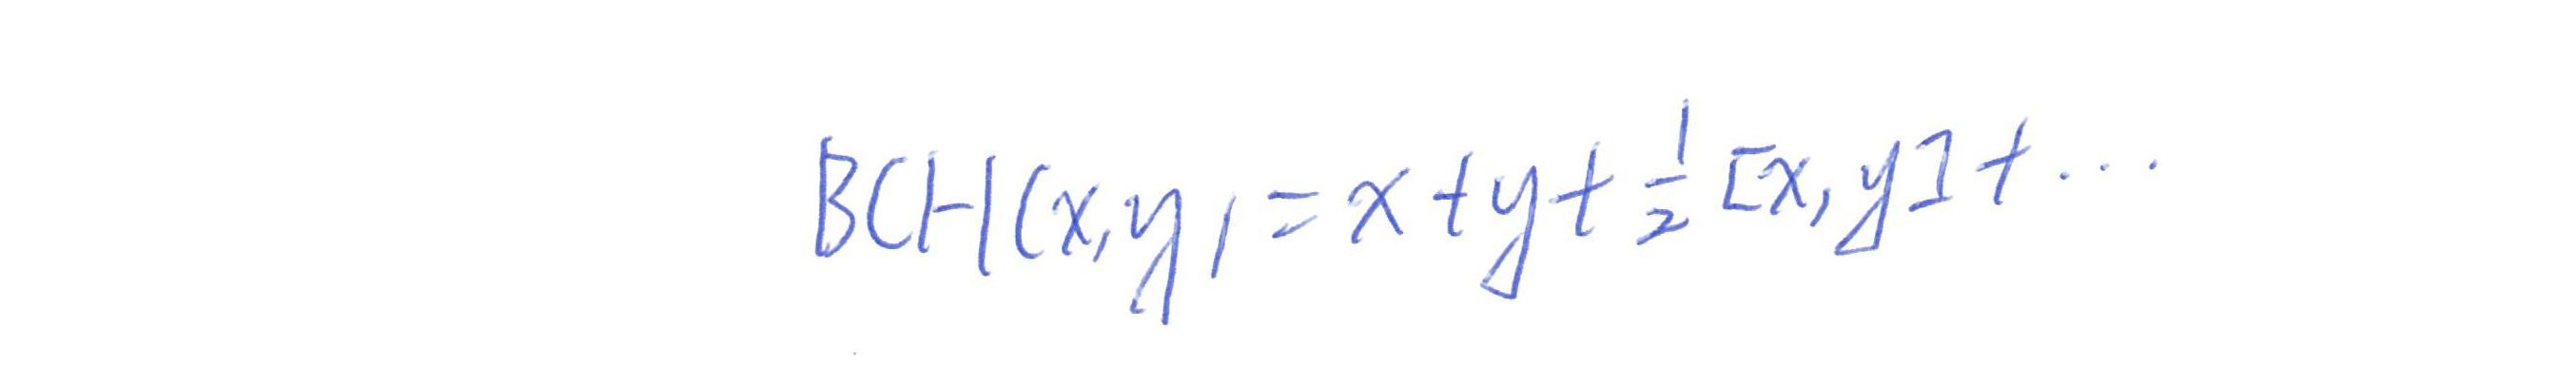 BCH(x,y) = x + y + 1/2 [x,y] + ...